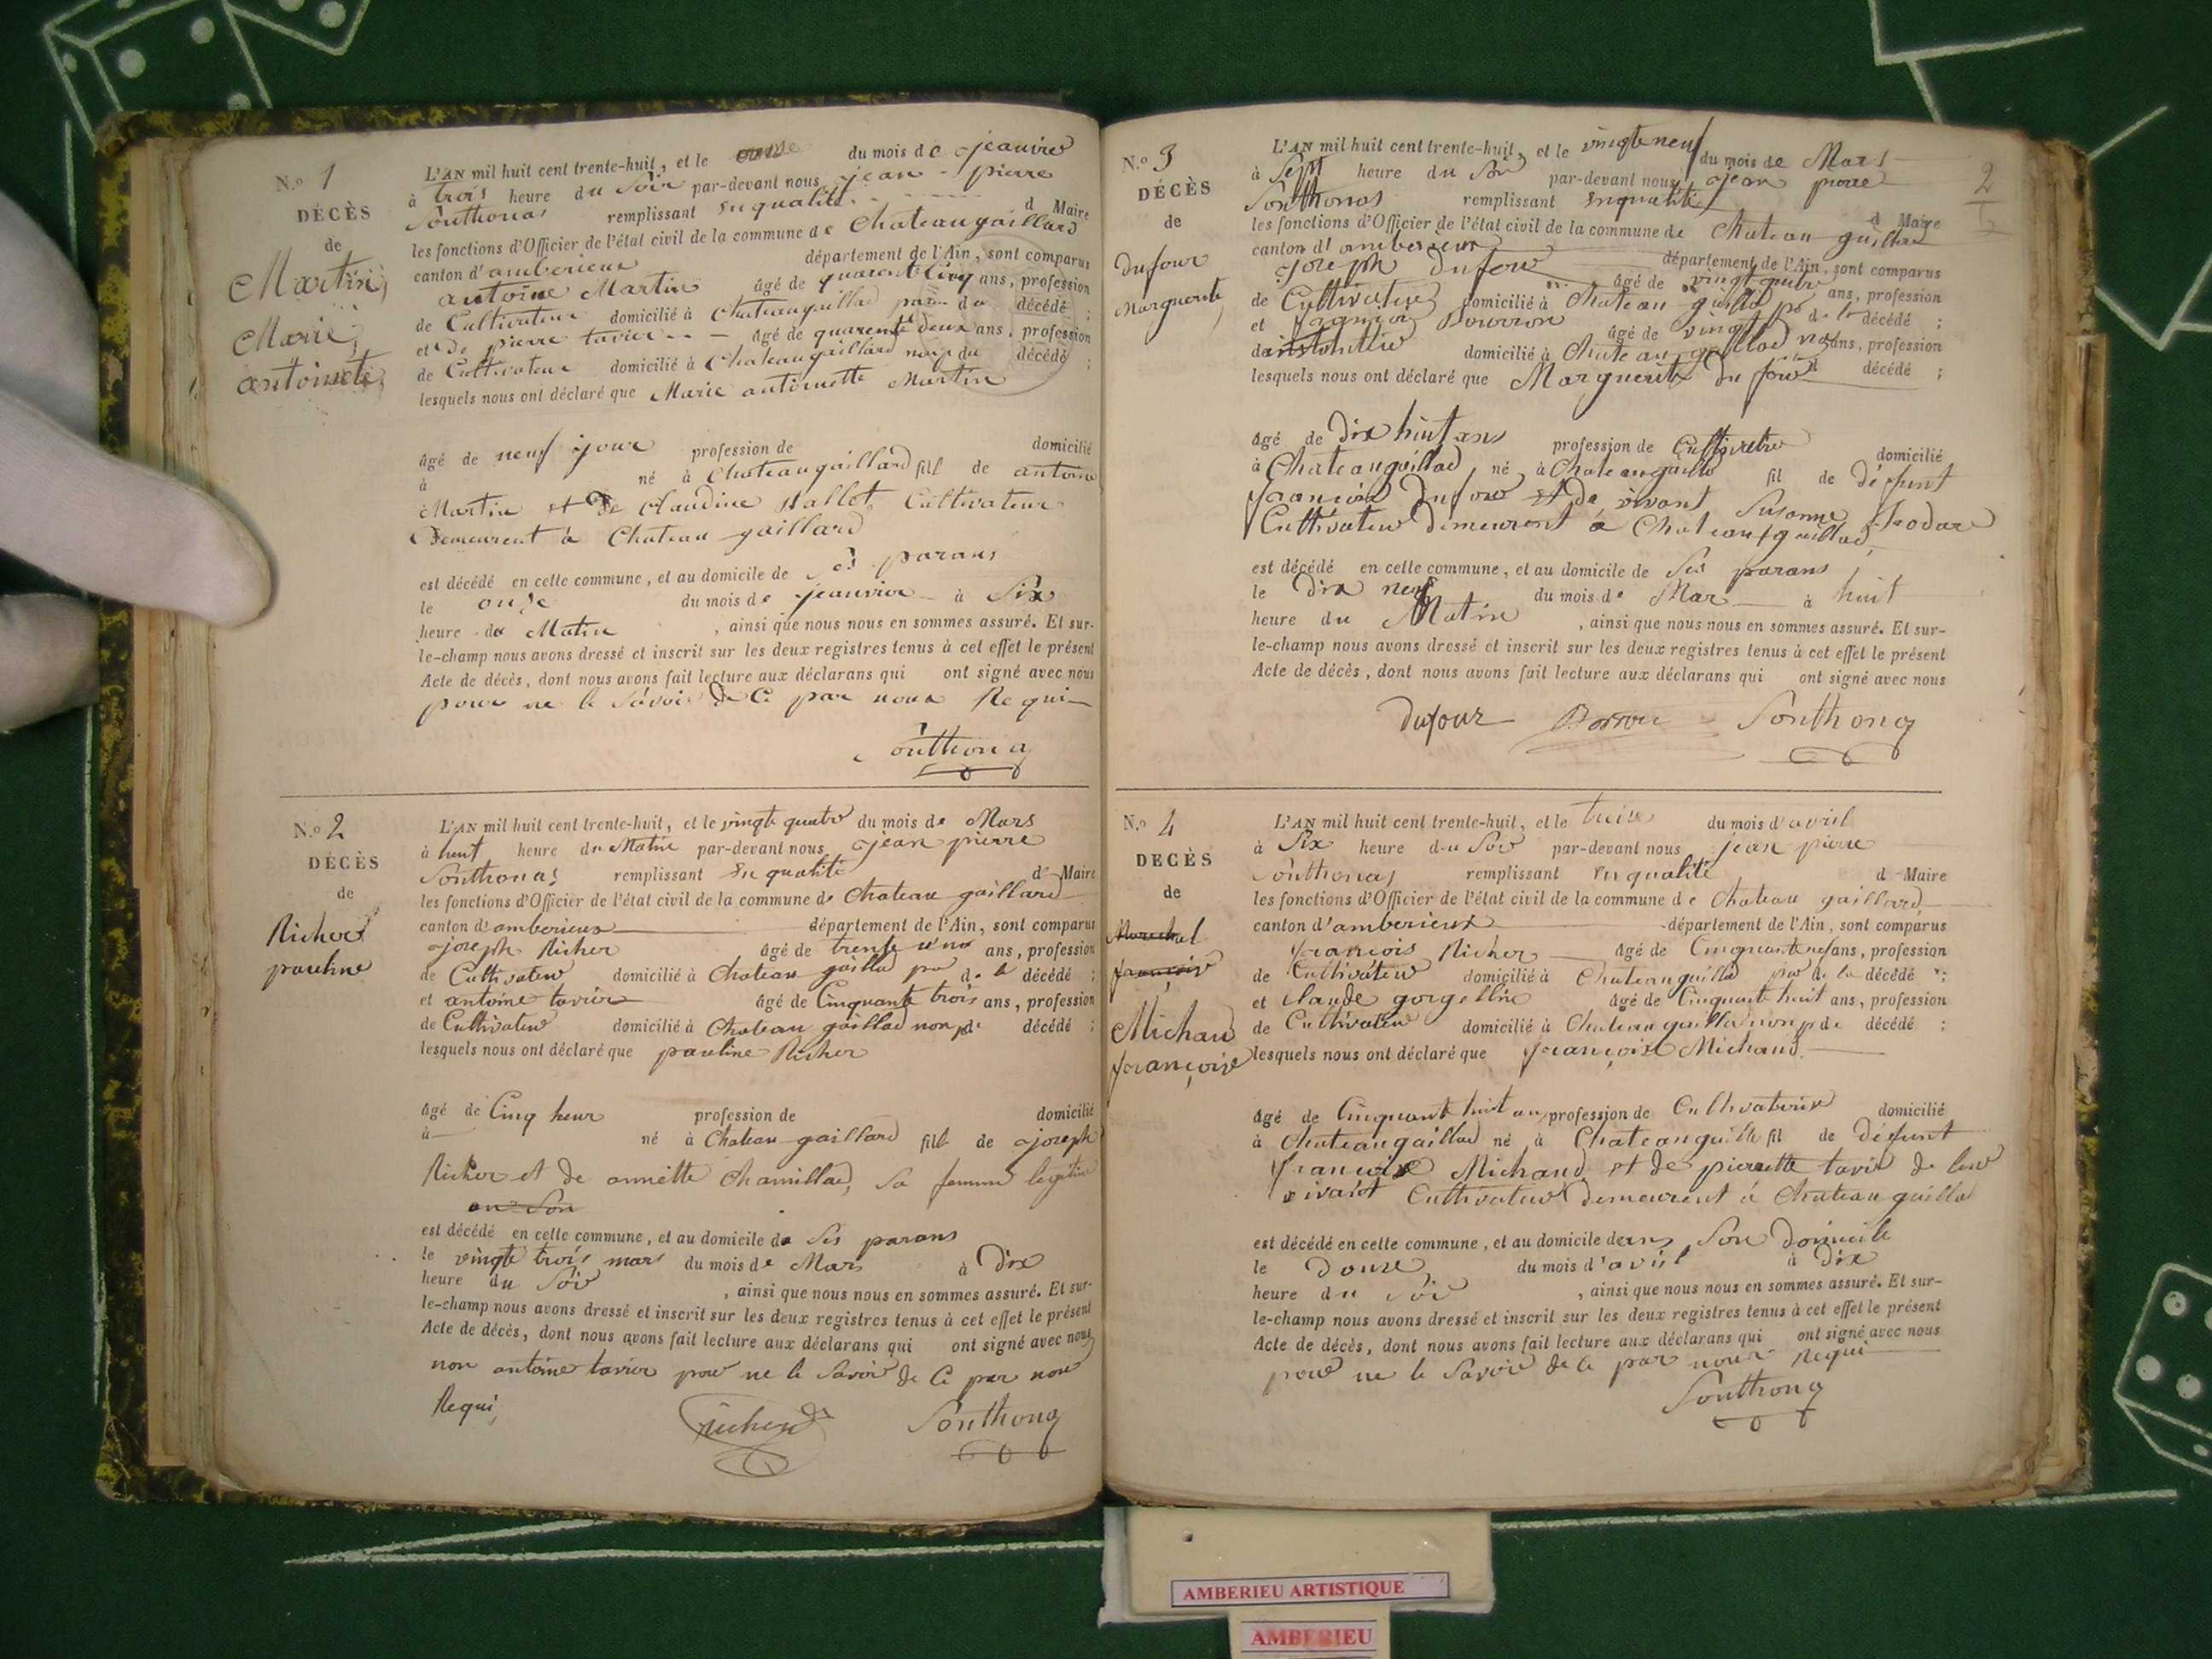 N.o 1
DÉCÈS
de
Martin,
Marie,
antoinette,
L'AN mil huit cent trente-huit, et le onse du mois de jeanvier
à trois heure du Soir par-devant nous jean - pierre
Sonthonas remplissant en qualité d Maire
les fonctions d'Officier de l'état civil de la commune de Chateaugaillard
canton d'amberieux département de l'Ain, sont comparus
antoine Martin âgé de quarente cinq ans, profession
de Cultivateur domicilié à Chateaugaillad du décédé ;
et de pierre tavier - - - âgé de quarente deux ans, profession
de Cultivateur domicilié à Chateaugaillard non p du décédé ;
lesquels nous ont déclaré que Marie antoinette Martin
âgé de neuf jour profession de domicilié
à né à Chateaugaillard fill de antoine
Martin et de Claudine Hallet Cultivateur
Demeurent à Chateau gaillard
est décédé en cette commune, et au domicile de Ses parans
le onze du mois de jeanvier à Six
heure du Matin , ainsi que nous nous en sommes assuré. Et sur-
le-champ nous avons dressé et inscrit sur les deux registres tenus à cet effet le présent
Acte de décès, dont nous avons fait lecture aux déclarans qui ont signé avec nous
pour ne le Savoir de Ce par nous Requi
Sonthonas
N.o 2
DÉCÈS
de
Richer
pauline
L'AN mil huit cent trente-huit, et le vingte quatre du mois de Mars
à huit heure du Matin par-devant nous jean pierre
Sonthonas remplissant en qualité d Maire
les fonctions d'Officier de l'état civil de la commune de Chateau gaillard
canton d'amberieux département de l'Ain, sont comparus
joseph Richer âgé de trente une ans, profession
de Cultivateur domicilié à Chateau gaillad de la décédé ;
et antoine tavier âgé de Cinquante trois ans, profession
de Cultivateur domicilié à Chateau gaillad non p de décédé ;
lesquels nous ont déclaré que pauline Richer
âgé de Cinq heur profession de domicilié
à né à Chateau gaillard fill de joseph
Richer et de annette Chamillad, Sa femme legitime
est décédé en cette commune, et au domicile de Ses parans
le vingte trois mars du mois de Mars à Dix
heure du Soir , ainsi que nous nous en sommes assuré. Et sur-
le-champ nous avons dressé et inscrit sur les deux registres tenus à cet effet le présent
Acte de décès, dont nous avons fait lecture aux déclarans qui ont signé avec nous
non antoine tavier pour ne le Savoir de Ce par nous
Requi,
Richer Sonthonas
2
N.o 3
DÉCÈS
de
Dufour
Marguerite
L'AN mil huit cent trente-huit, et le vingte neuf du mois de Mars
à Sept heure du Soir par-devant nous jean pierre
Sonthonas remplissant en qualité d Maire
les fonctions d'Officier de l'état civil de la commune de Chateau gaillad
canton d'amberieux département de l'Ain, sont comparus
joseph Dufour âgé de vingt quatre ans, profession
de Cultivateur domicilié à Chateau gaillad de la décédé ;
et françois Bourron âgé de vingt ans, profession
de instututeur domicilié à Chateau gaillad décédé ;
lesquels nous ont déclaré que Marguerite Dufour
âgé de Dix huit ans profession de Cultivatrice domicilié
à Chateaugaillad né à Chateaugailla fil de défunt
françois Dufour et de vivant Susanne
Cultivateur demeurent à Chateau gaillad
est décédé en cette commune, et au domicile de Ses parans
le Dix neuf du mois de Mar à huit
heure du Matin , ainsi que nous nous en sommes assuré. Et sur-
le-champ nous avons dressé et inscrit sur les deux registres tenus à cet effet le présent
Acte de décès, dont nous avons fait lecture aux déclarans qui ont signé avec nous
Dufour Sonthonas
N.o 4
DECÈS
de
Marechal
françoise
Michau
françoise
L'AN mil huit cent trente-huit, et le treise du mois d'avril
à Six heure du Soir par-devant nous jean pierre
Sonthonas remplissant en qualité d Maire
les fonctions d'Officier de l'état civil de la commune de Chateau gaillard
canton d'amberieux département de l'Ain, sont comparus
françois Richer âgé de Cinquante neuf ans, profession
de Cultivateur domicilié à Chateaugailla de la décédé ;
et Claude gorgellin âgé de Cinquante huit ans, profession
de Cultivateur domicilié à Chateaugailla non p de décédé ;
lesquels nous ont déclaré que françoise Michaud
âgé de Cinquant huit an, profession de Cultivatrice domicilié
à Chateaugaillad né à Chateaugailla fil de défunt
françois Michaud et de pierrette tavier de leur
vivant Cultivateur demeurent à Chateaugaillad
est décédé en cette commune, et au domicile dans Son Domicile
le Douze du mois d'avril à Dix
heure du Soir , ainsi que nous nous en sommes assuré. Et sur-
le-champ nous avons dressé et inscrit sur les deux registres tenus à cet effet le présent
Acte de décès, dont nous avons fait lecture aux déclarans qui ont signé avec nous
pour ne le Savoir de Ce par nous Requi
Sonthonas
AMBERIEU ARTISTIQUE
AMBERIEU